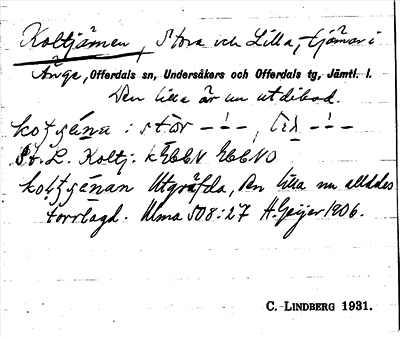 Koltjämen, Stora och Lilla, tjärnar i
Ånge, Offerdals sn, Undersåkers och Offerdals tg, Jämtl. l.
Den lilla är nu utdikad.
: stor –'–, –'–
St. L. Koltj.
Utgräfda, den lilla nu alldeles
torrlagd. Ulma 508:27 H. Geijer 1906.
C. LINDBERG 1931.